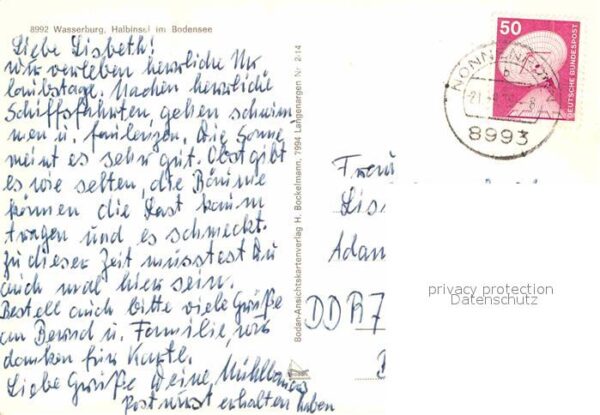 8992 Wasserburg, Halbinsel im Bodensee
Liebe Lisbeth!
wir verleben herrliche Ur
laubstage. Machen herrliche
Schiffsfahrten, gehen schwim
men u. faulenzen. Die Sonne
meint es sehr gut. Obst gibt
es wie selten, die Bäume
können die Last kaum
tragen und es schmeckt.
Zu dieser Zeit müsstest Du
auch mal hier sein.
Bestell auch bitte viele Grüße
an Bernd u. Familie, wir
danken für Karte.
Liebe Grüße Deine
Post muss erhalten haben
Bodan-Ansichtskartenverlag H. Bockelmann, 7994 Langenargen Nr. 2-14
50
DEUTSCHE BUNDESPOST
NONNENHORN
b
8993
Frau
Lis
Adam
DDR 7
privacy protection
Datenschutz